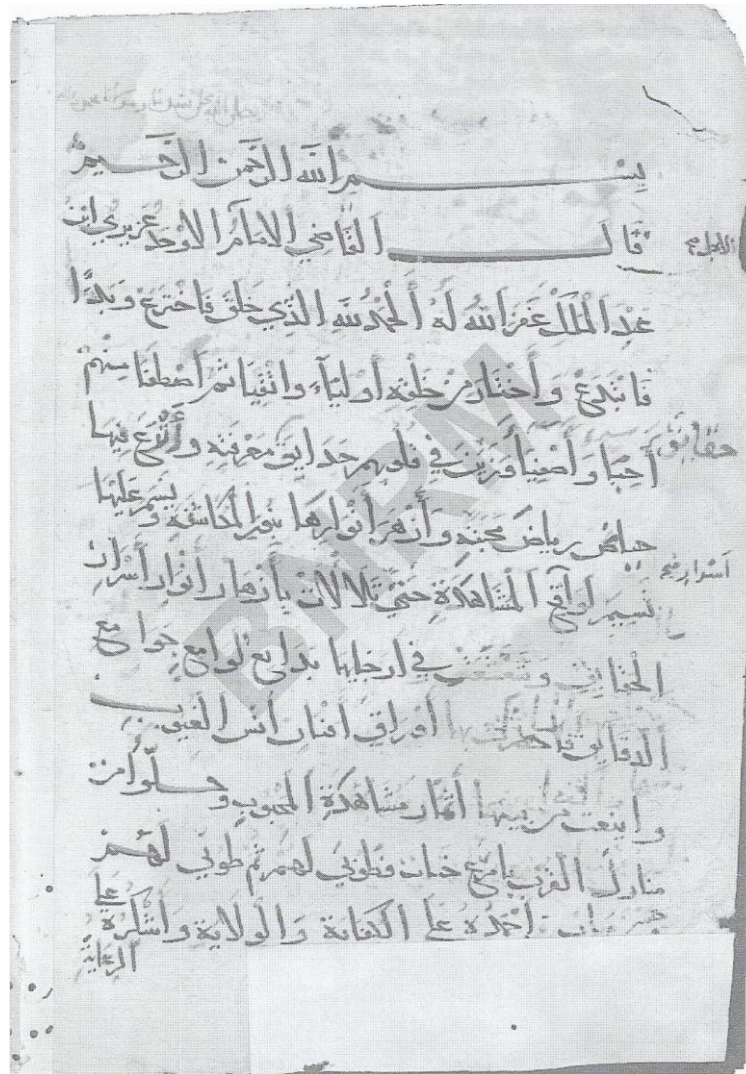 صلى الله على سيدنا ومولانا محمد
بسم الله الرحمن الرحيم
قال القاضي الامام الاوحد عزيزي ابن
الاجل صح
عبد الملك غفر الله له الحمد لله الذي خلق فاخترع وبدا
فابتدع واختار من خلقه اولياء واتقيا ثم اصطفا منهم
احبا واصفيا فزين في قلوبهم حدايق معرفته وأترع فيها
حقائق
حياض رياض محبته وأزهر أنوارها بنور المكاشفة ويسم عليها
نسيم لواقح المشاهدة حتى تلألأت بأزهار أنوار أسرار
أسرار صح
الحقايق وتفتقت في ارجايها بدايع لوامع جوامع
الدقايق أوراق افنان أنس الغيوب
واينعت من بينها أثمار مشاهدة المحبوب وحلوا من
منازل القرب بامرع جناب فطوبى لهم ثم طوبى لهم
احمده على الكفاية والولاية واشكره على
الرعاية
BNRM